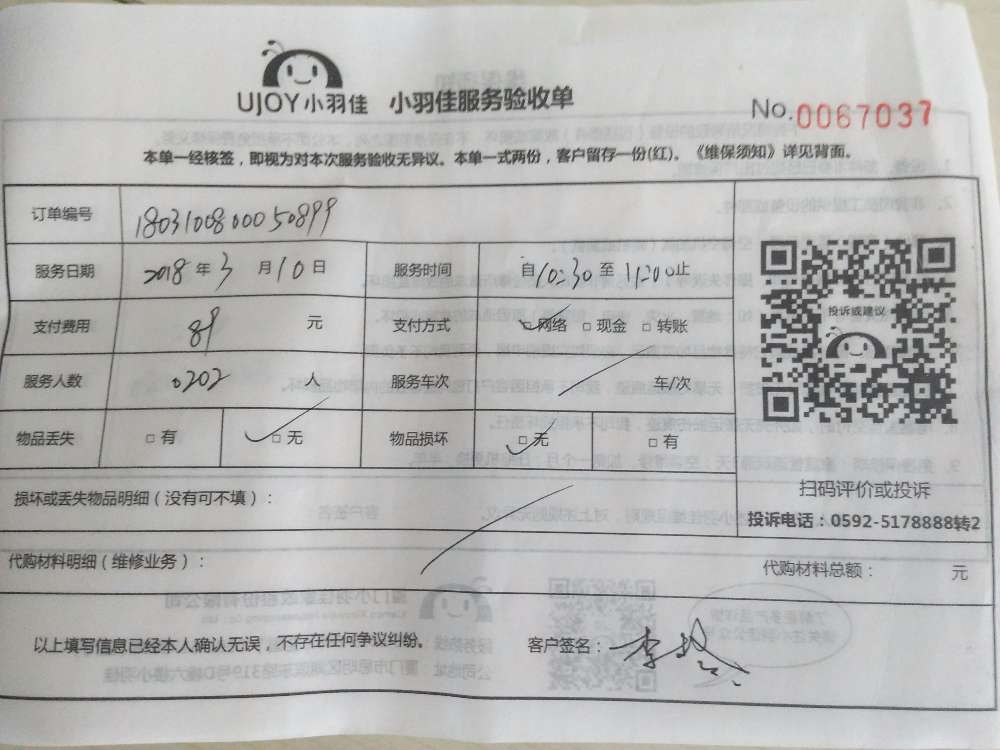 UJOY小羽佳 小羽佳服务验收单
No.0067037
本单一经核签，即视为对本次服务验收无异议。本单一式两份，客户留存一份(红)。《维保须知》详见背面。
订单编号 1803100800050899
服务日期 2018年3月10日 服务时间 自10:30至11:20止
支付费用 89 元 支付方式 网络 现金 转账
投诉或建议
服务人数 0202 人 服务车次 车/次
物品丢失 有 无 物品损坏 无 有
扫码评价或投诉
损坏或丢失物品明细（没有可不填）：
投诉电话：0592-5178888转2
代购材料明细（维修业务）：
代购材料总额： 元
以上填写信息已经本人确认无误，不存在任何争议纠纷。 客户签名：李